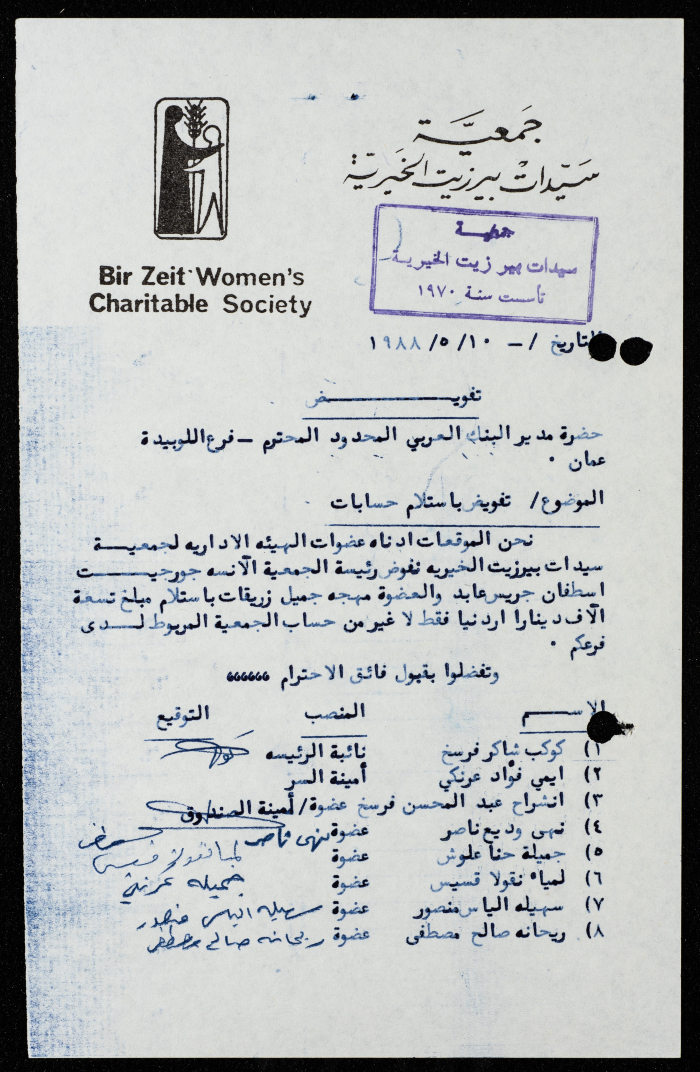 جَمعيَّة
سَيّداتْ بيرزيت الخَيريّة
Bir Zeit Women's
Charitable Society
جمعية
سيدات بير زيت الخيرية
تأسست سنة ١٩٧٠
التاريخ /- ١٠/٥/١٩٨٨
تفويض
حضرة مدير البنك العربي المحدود المحترم – فرع اللويبدة
عمان ٠
الموضوع/ تفويض باستلام حسابات
نحن الموقعات ادناه عضوات الهيئه الاداريه لجمعية
سيدات بيرزيت الخيريه نفوض رئيسة الجمعية الآنسه جورجيت
اسطفان جريس عابد والعضوة مهجه جميل زريقات باستلام مبلغ تسعة
الآف دينارا اردنيا فقط لا غير من حساب الجمعية المربوط لدى
فرعكم ٠
وتفضلوا بقبول فائق الاحترام ،،،،،،
الاسم المنصب التوقيع
١) كوكب شاكر فرسخ نائبة الرئيسه
٢) ايمي فؤاد عرنكي أمينة السر
٣) انشراح عبد المحسن فرسخ عضوة/ أمينة الصندوق
٤) نهى وديع ناصر عضوة نهى ناصر
٥) جميلة حنا علوش عضوة
٦) لمياء نقولا قسيس عضوة
٧) سهيله الياس منصور عضوة سهيله الياس منصور
٨) ريحانه صالح مصطفى عضوة ريحانه صالح مصطفى